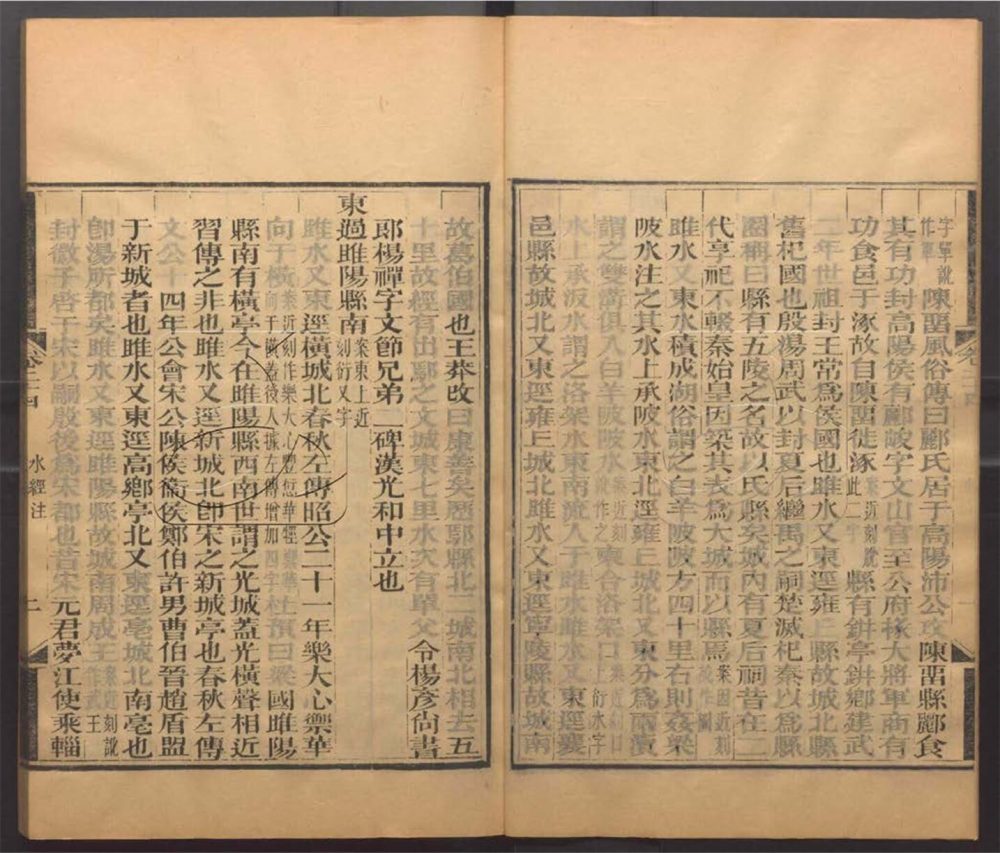 字單說作單陳留風俗傳曰酈氏居于高陽沛公攻陳留縣酈食
其有功封高陽侯有酈峻字文山官至公府掾大將軍商有
功食邑于涿故自陳留徙涿案近刻脫此二字縣有鉼亭鉼鄉建武
二年世祖封王常爲侯國也睢水又東逕雍丘縣故城北縣
舊杞國也殷湯周武以封夏后繼禹之嗣楚滅杞秦以爲縣
圈稱曰縣有五陵之名故以氏縣矣城內有夏后祠昔在二
代享祀不輟秦始皇因築其表爲大城而以縣焉
睢水又東水積成湖俗謂之白羊陂陂方四十里右則姦梁
陂水注之其水上承陂水東北逕雍丘城北又東分爲兩瀆
謂之雙溝俱入白羊陂陂水東合洛架口
水上承汳水謂之洛架水東南流入于睢水睢水又東逕襄
邑縣故城北又東逕雍丘城北睢水又東逕寧陵縣故城南
故葛伯國也王莽改曰康善矣歷鄢縣北二城南北相去五
十里故經有出鄢之文城東七里水次有單父令楊彥尙書
郎楊禪字文節兄弟二碑漢光和中立也
東過睢陽縣南案東上近刻衍又字
睢水又東逕橫城北春秋左傳昭公二十一年樂大心禦華
向于橫案近刻作樂大心豐愆華牼禦華向于橫蓋後人據左傳增加四字杜預曰梁國睢陽
縣南有橫亭今在睢陽縣西南世謂之光城蓋光橫聲相近
習傳之非也睢水又逕新城北卽宋之新城亭也春秋左傳
文公十四年公會宋公陳侯衞侯鄭伯許男曹伯晉趙盾盟
于新城者也睢水又東逕高鄉亭北又東逕亳城北南亳也
卽湯所都矣睢水又東逕睢陽縣故城南周成王
封微子啓于宋以嗣殷後爲宋都也昔宋元君夢江使乘輜
水經注
二